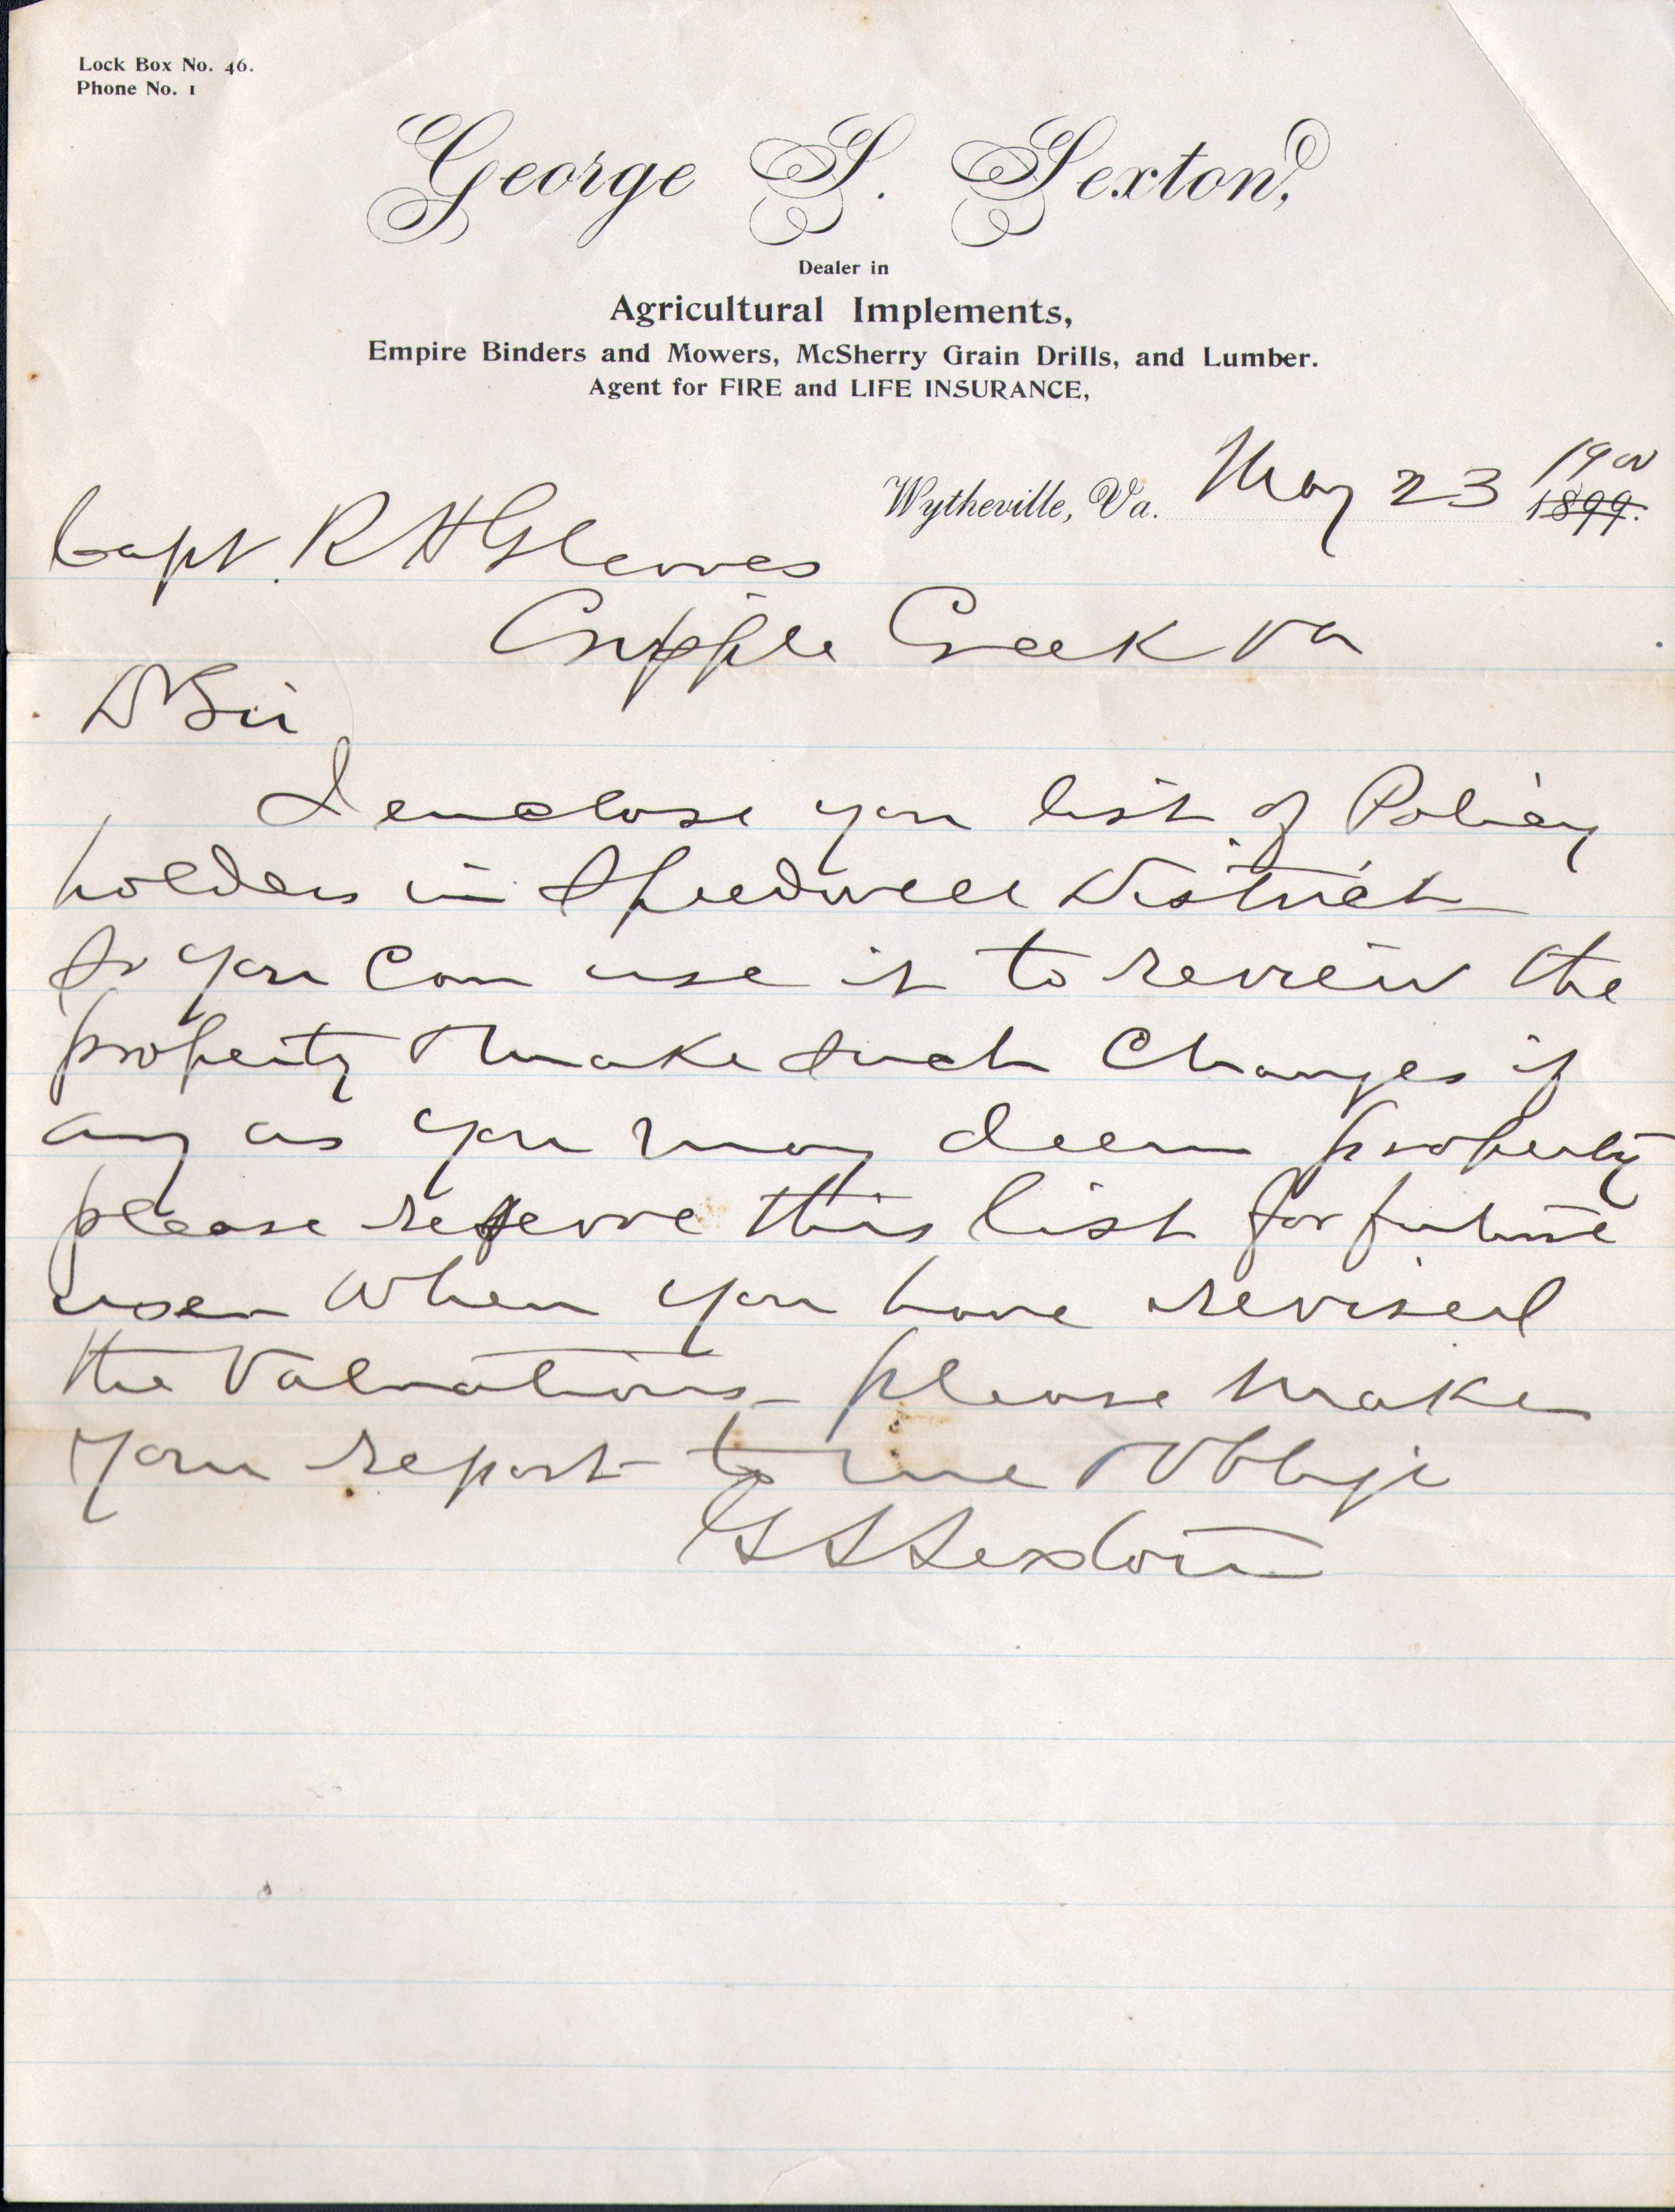 Lock Box No. 46.
Phone No. 1
George S. Sexton,
Dealer in
Agricultural Implements,
Empire Binders and Mowers, McSherry Grain Drills, and Lumber.
Agent for FIRE and LIFE INSURANCE,
Wytheville, Va. May 23 1900
1899.
Capt. R H Gleaves
Cripple Creek Va
D Sir
I enclose you list of Policy
holders in Speedwell District
So you can use it to review the
property & make such changes if
any as you may deem property
please reserve this list for future
use - When you have revised
the Valuations - please make
your report to me & Oblige
G S Sexton